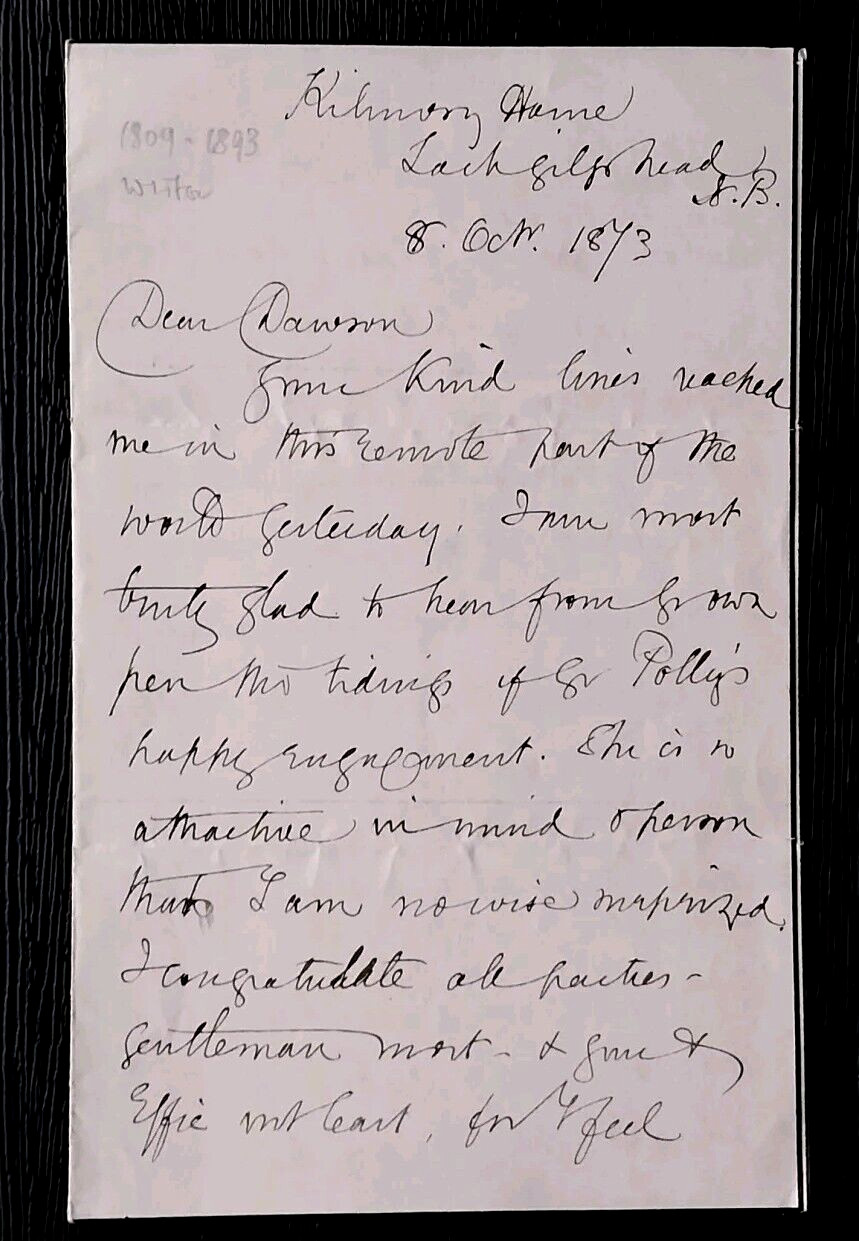 1809 - 1893
Writer
Kilmory Home
Lochgilphead
N.B.
8. Oct. 1873
Dear Dawson
Your Kind lines reached
me in this remote part of the
world yesterday. I am most
truly glad to hear from yr own
pen the tidings of yr Polly's
happy engagement. She is so
attractive in mind & person
that I am no wise surprized.
I congratulate all parties -
gentleman most - & you &
Effie not least, for I feel